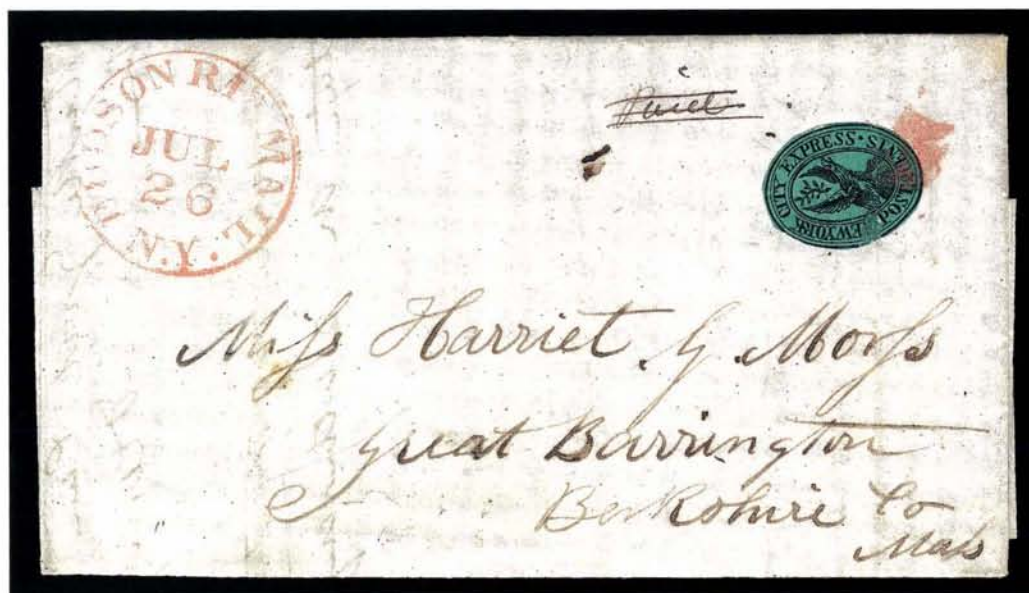 HUDSON RIV MAIL
JUL
26
N.Y.
Paid
CITY EXPRESS • POST
2 CENTS
Miſs Harriet G. Morſs
Great Barrington
Berkshire Co
Maſs